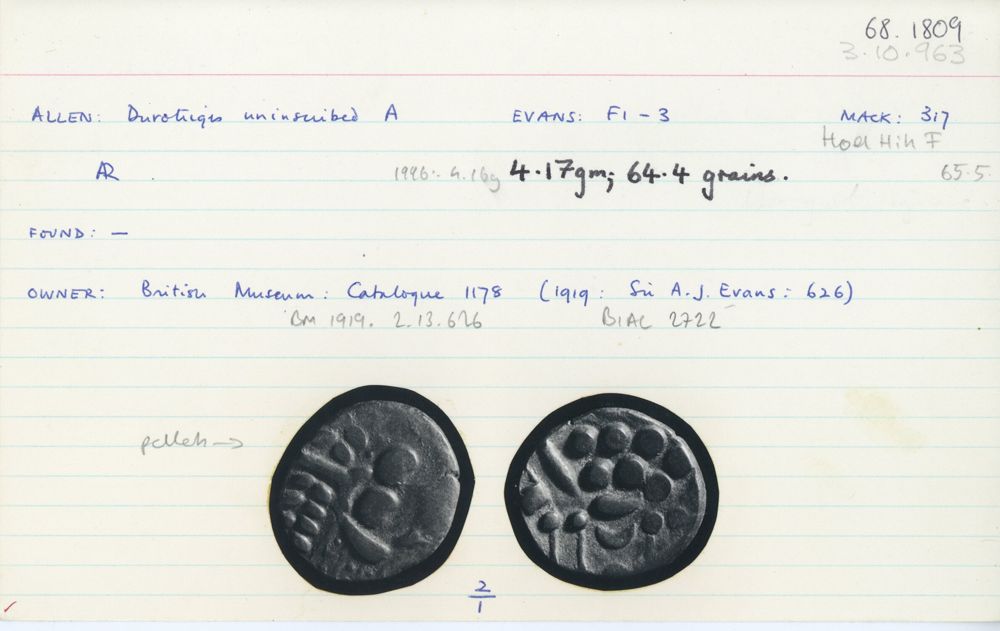 68. 1809
3.10.963
ALLEN: Durotriges uninscribed A EVANS: F1 - 3 MACK: 317
Hod Hill F
AR 1996: 4.16g 4.17gm; 64.4 grains. 65.5
FOUND: —
OWNER: British Museum: Catalogue 1178 (1919: Sir A.J. Evans: 626)
BM 1919. 2.13.626 BIAC 2722
pellets →
2
1